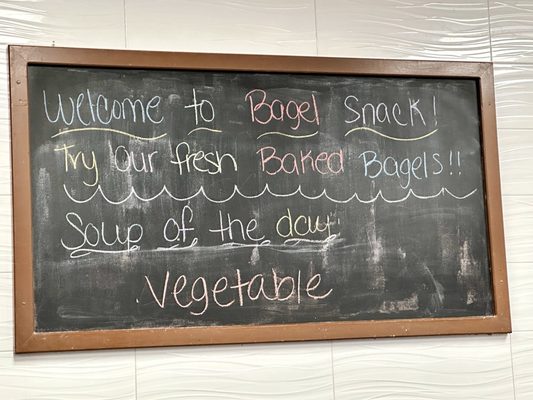 Welcome to Bagel Snack!
Try Our fresh Baked Bagels!!
Soup of the day
Vegetable